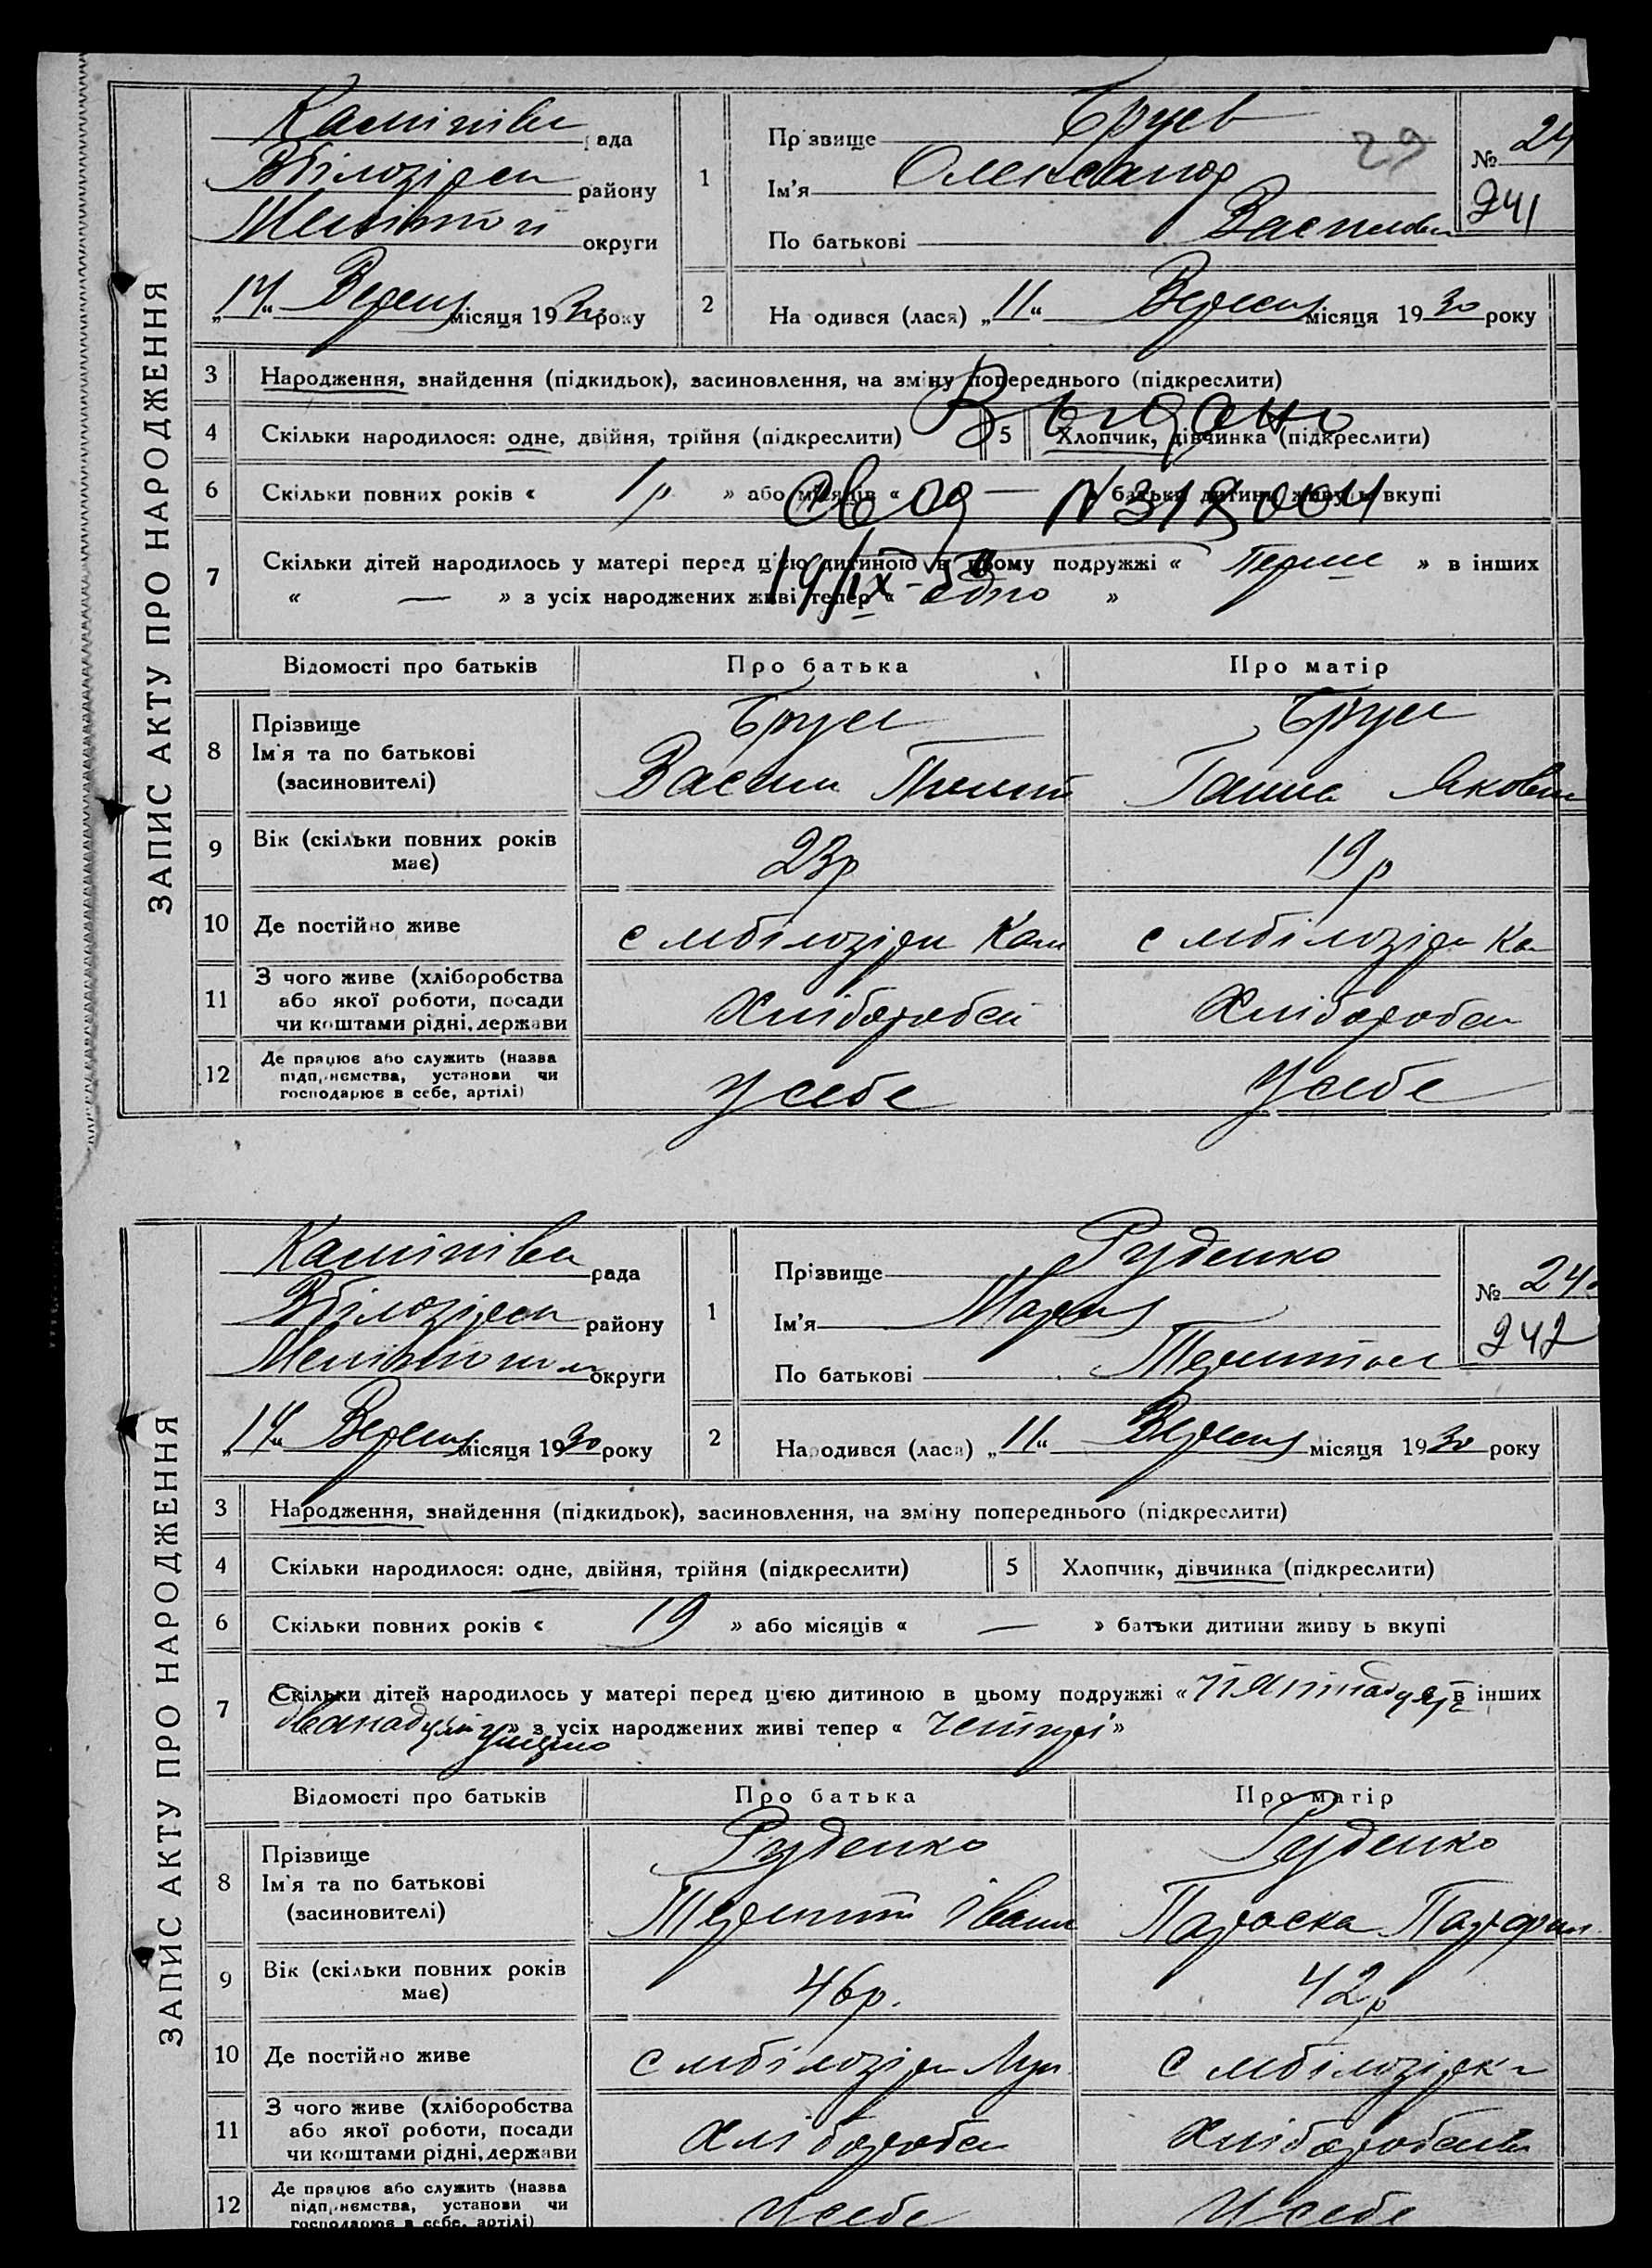 ЗАПИС АКТУ ПРО НАРОДЖЕННЯ
Камінівс рада
Вбілозірсь району
Меліт округи
„14“ Вересня місяця 1930 року
1
Прізвище Бруєв
29
Ім’я Олександр
По батькові Василов
№ 24
241
2 Народився (лася) „11“ Вересня місяця 1930 року
3 Народження, знайдення (підкидьок), засиновлення, на зміну попереднього (підкреслити)
Выдано
4 Скільки народилося: одне, двійня, трійня (підкреслити) 5 Хлопчик, дівчинка (підкреслити)
6 Скільки повних років « 1р » або місяців « — » батьки дитини живуть вкупі
7 Скільки дітей народилось у матері перед цією дитиною в цьому подружжі « Перше » в інших
« — » з усіх народжених живі тепер « одно »
Відомості про батьків Про батька Про матір
8 Прізвище
Ім’я та по батькові
(засиновителі)
Бруєв
Васил
Бруєв
Ганна Яковл
9 Вік (скільки повних років має) 23р 19р
10 Де постійно живе с мбілозірк Кам с мбілозірк Ка
11 З чого живе (хліборобства
або якої роботи, посади
чи коштами рідні, держави
Хліборобсй Хліборобсь
12 Де працює або служить (назва
підприємства, установи чи
господарює в себе, артілі)
У себе У себе
ЗАПИС АКТУ ПРО НАРОДЖЕННЯ
Камінівс рада
Вбілозірсь району
Меліт округи
„14“ Вересня місяця 1930 року
1
Прізвище Руденко
Ім’я Марія
По батькові Терентіев
№ 24
242
2 Народився (лася) „11“ Вересня місяця 1930 року
3 Народження, знайдення (підкидьок), засиновлення, на зміну попереднього (підкреслити)
4 Скільки народилося: одне, двійня, трійня (підкреслити) 5 Хлопчик, дівчинка (підкреслити)
6 Скільки повних років « 19 » або місяців « — » батьки дитини живуть вкупі
7 Скільки дітей народилось у матері перед цією дитиною в цьому подружжі « пятнадцять в інших
дванадцять умерло » з усіх народжених живі тепер « четирі »
Відомості про батьків Про батька Про матір
8 Прізвище
Ім’я та по батькові
(засиновителі)
Руденко
Терентій Іван
Руденко
Параска Парфил
9 Вік (скільки повних років має) 46р. 42р
10 Де постійно живе с мбілозірк с мбілозірк
11 З чого живе (хліборобства
або якої роботи, посади
чи коштами рідні, держави
Хліборобсь Хліборобств
12 Де працює або служить (назва
підприємства, установи чи
господарює в себе, артілі)
У себе У себе